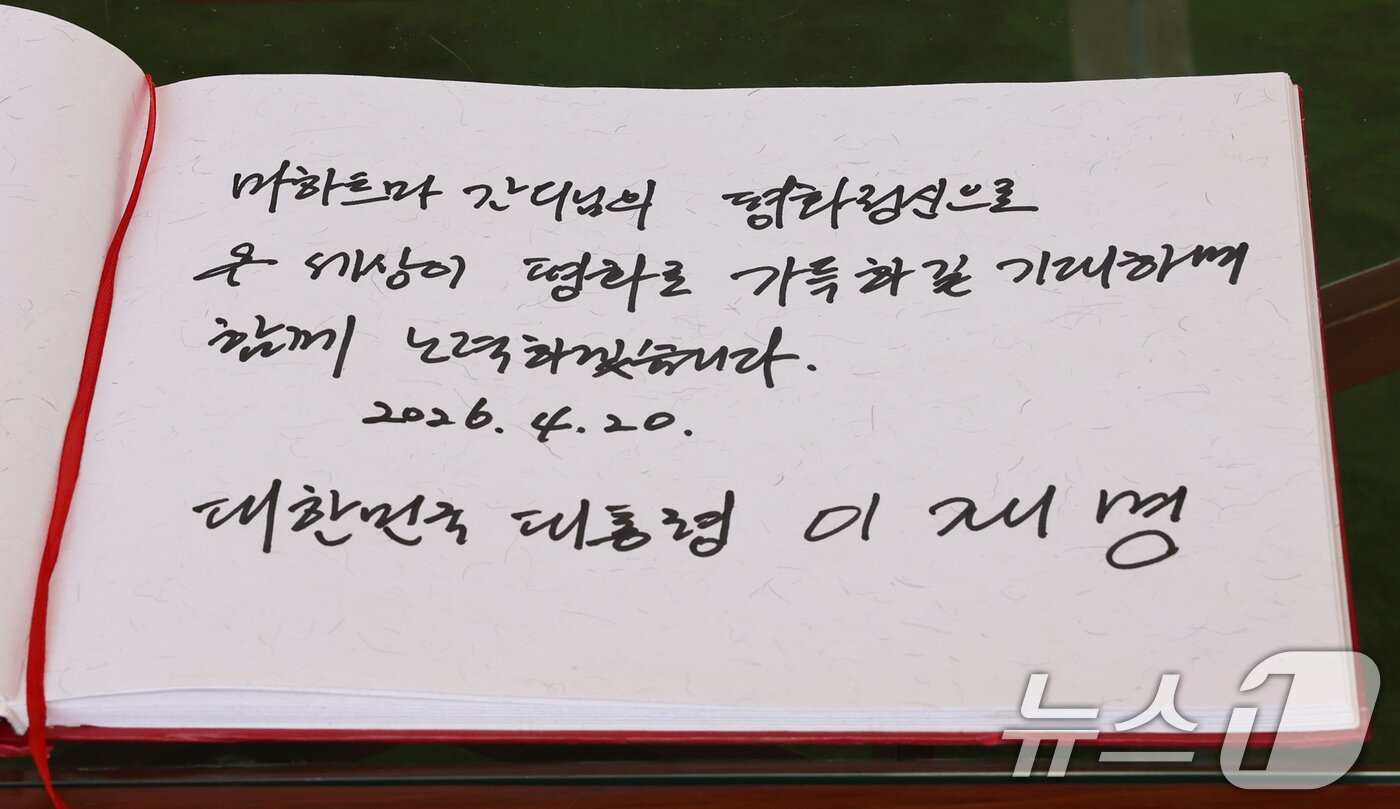 마하트마 간디님의 평화정신으로
온 세상이 평화로 가득하길 기대하며
함께 노력하겠습니다.
2026. 4. 20.
대한민국 대통령 이재명
뉴스1